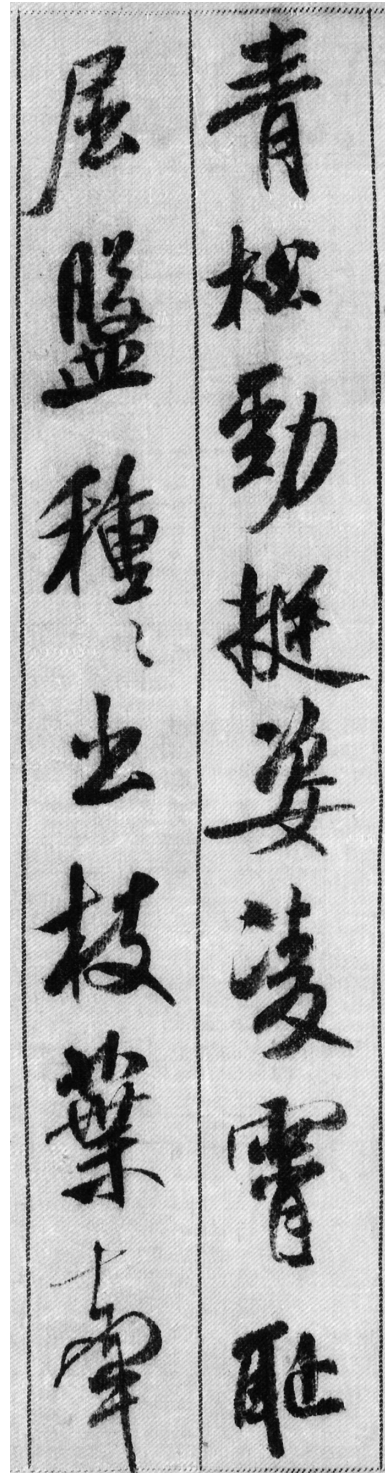 青松勁挺姿凌霄恥
屈盤種〻出枝葉牽